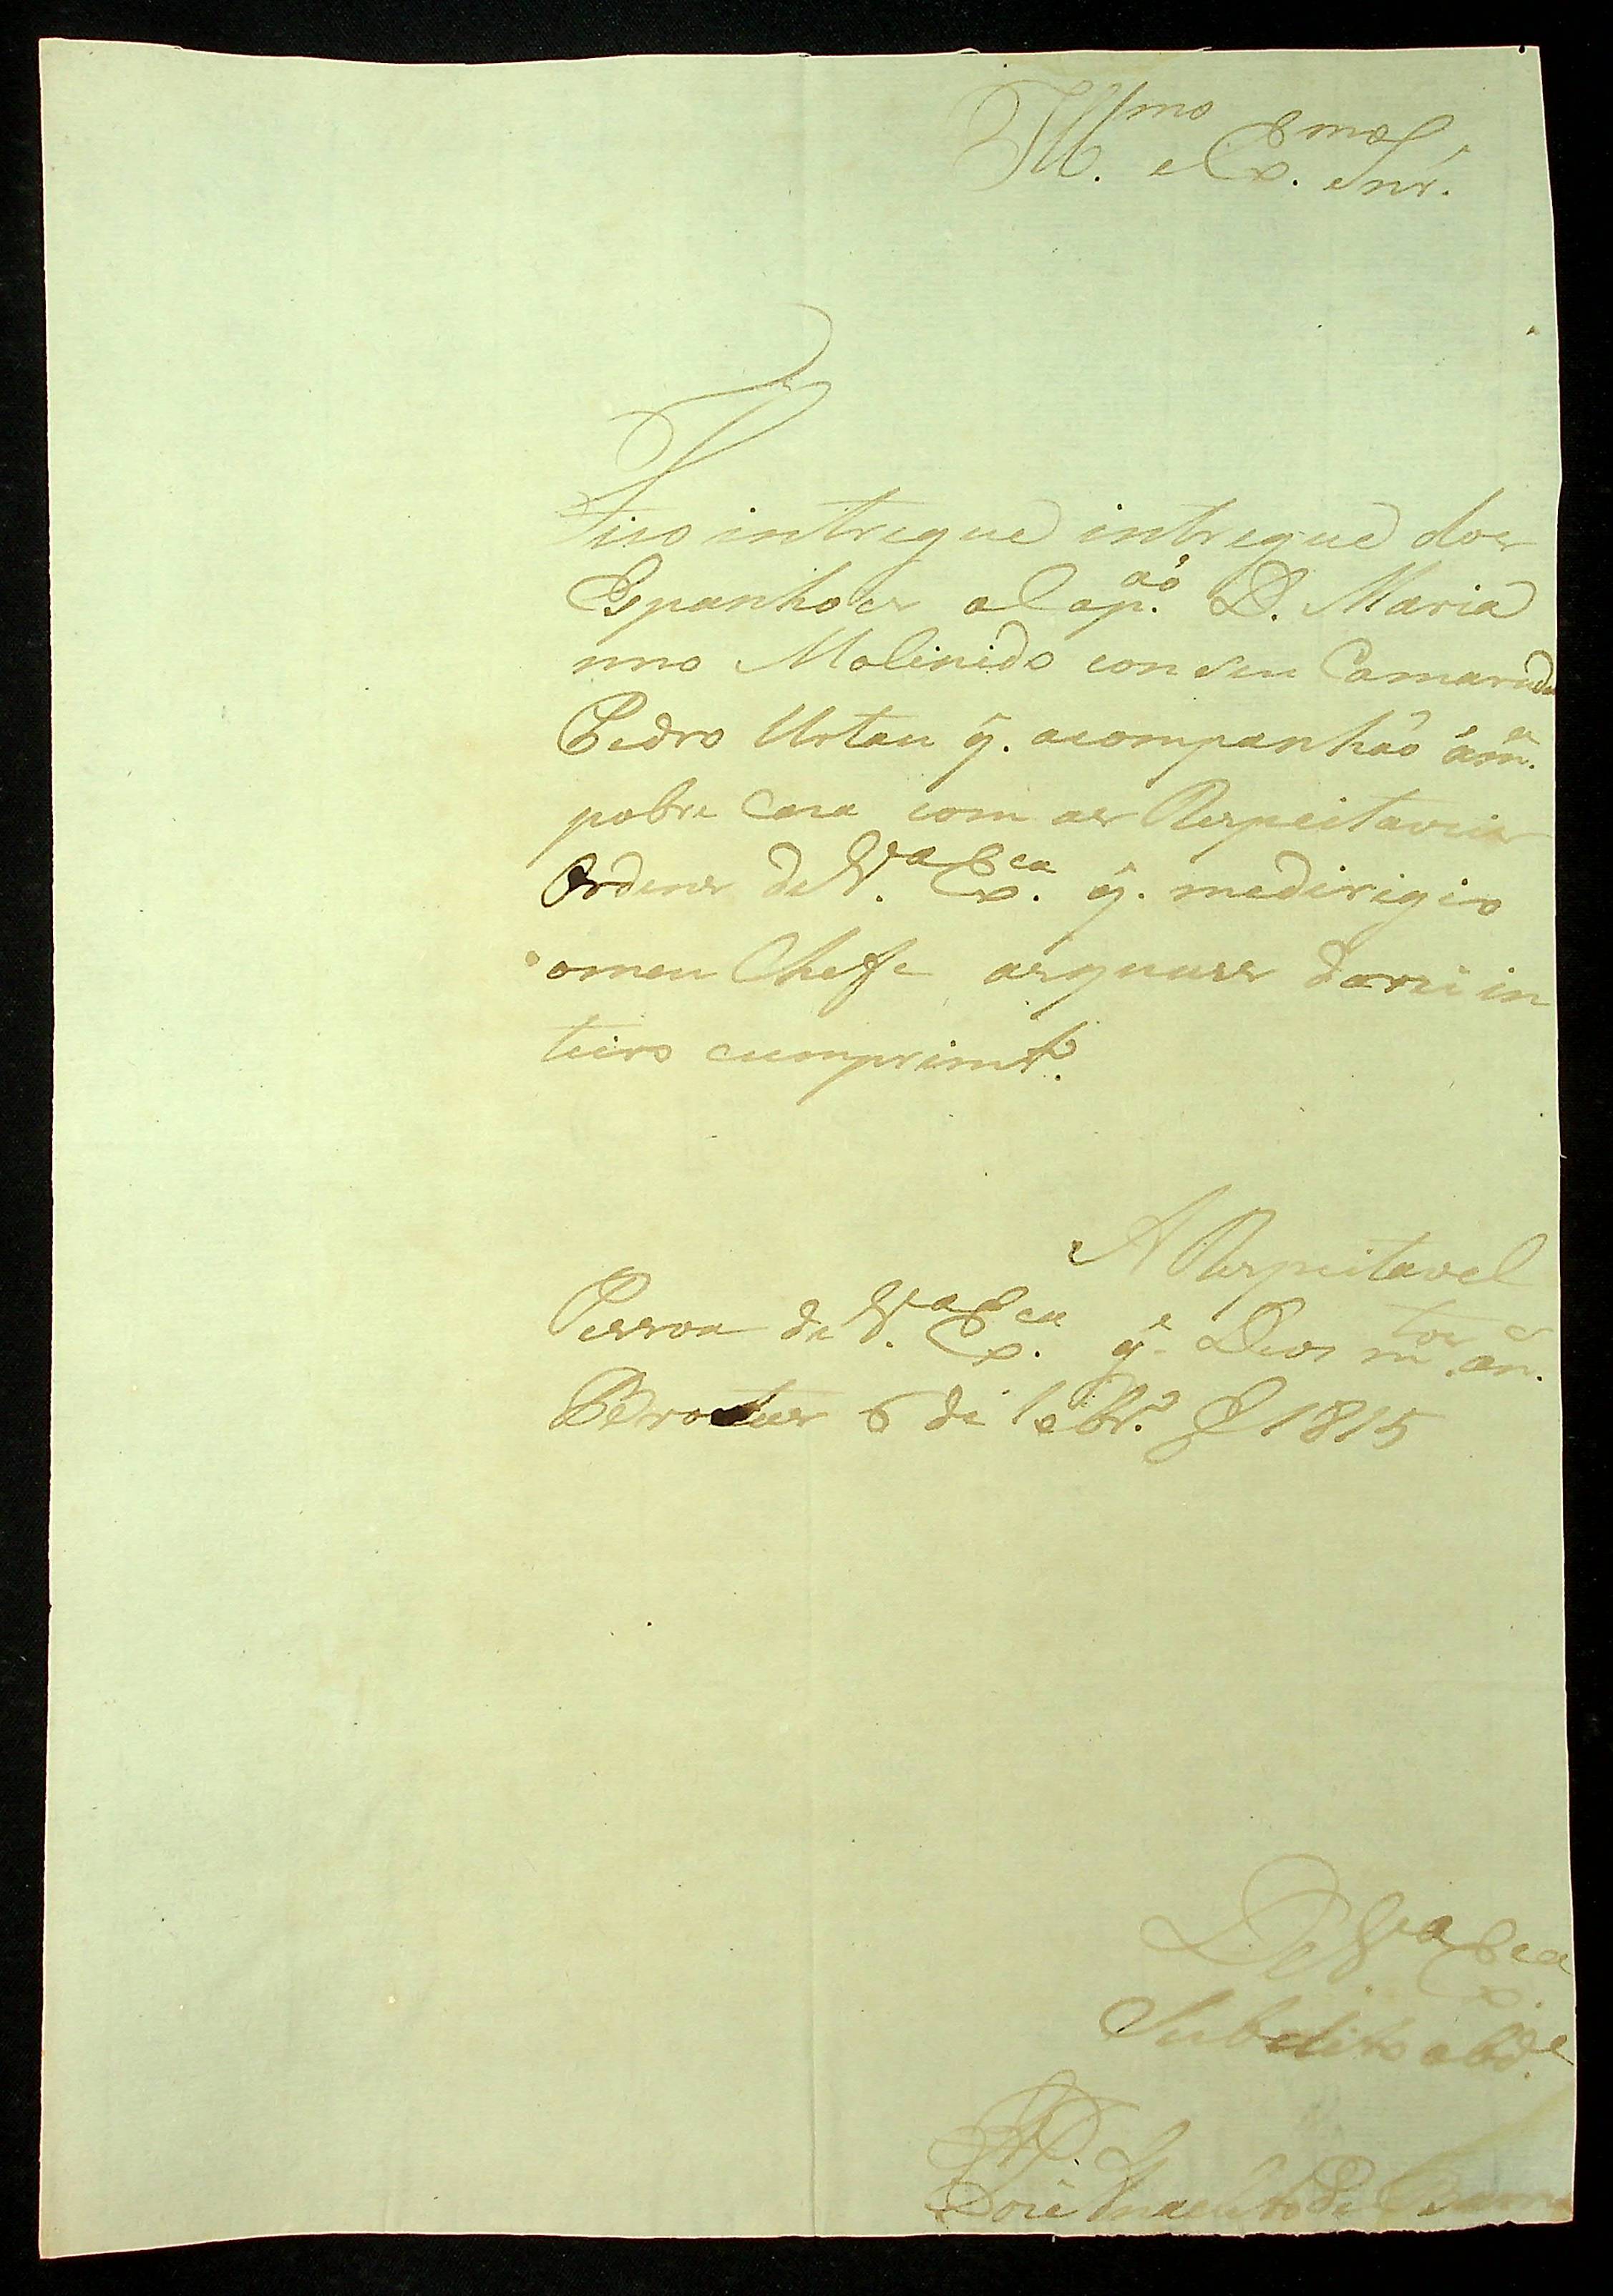 Ill.mo e Ex.mo Snr.
Fico intregue intregue dos
Espanhoes o Cap.ão D. Maria
nno Molinido con seu Camarada
Pedro Urtau q̃. acompanhão á m.a
pobre Caza com as Respeitaveis
Ordens de V.a Ex.ca q̃. me dirigio
o meu Cheffe as quaes darei in
teiro cumprim.to
A Respeitavel
Pessoa de V.a Ex.ca g.e Deos m.tos an.s
6 de Febr.o d 1815
De V.a Ex.ca
Subdito obd.e
José de Barros